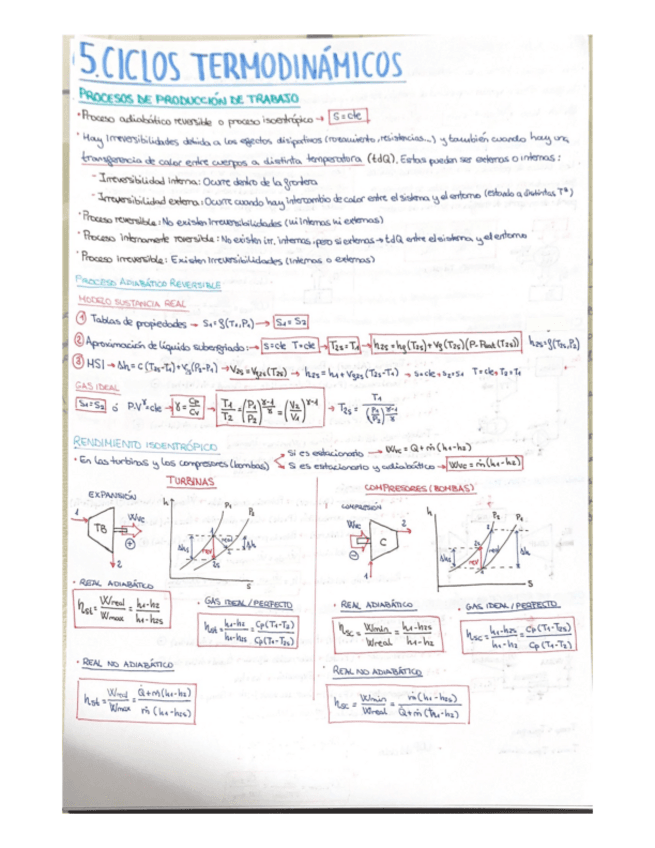 5.CICLOS TERMODINÁMICOS
PROCESOS DE PRODUCCIÓN DE TRABAJO
• Proceso adiabático reversible o proceso isoentrópico → S=cte
• Hay irreversibilidades debida a los efectos disipativos (rozamiento, resistencias...) y también cuando hay una
transferencia de calor entre cuerpos a distinta temperatura (tdQ). Estas pueden ser externas o internas:
- Irreversibilidad Interna: Ocurre dentro de la frontera
- Irreversibilidad externa: Ocurre cuando hay intercambio de calor entre el sistema y el entorno (estando a distintas Tª)
• Proceso reversible: No existen Irreversibilidades (ni internas ni externas)
• Proceso internamente reversible: No existen irr. internas, pero si externas → tdQ entre el sistema y el entorno
• Proceso irreversible: Existen Irreversibilidades (internas o externas)
PROCESO ADIABÁTICO REVERSIBLE
MODELO SUSTANCIA REAL
① Tablas de propiedades → S1=f(T1,P1) → S1=S2
② Aproximación de líquido subenfriado: → s=cte T=cte → T2s=T1 → h2s=hf(T2s)+Vf(T2s)(P-Psat(T2s)) h2s=f(T2s,P2)
③ MSI → Δh=c(T2s-T1)+Vf(P2-P1) →
s=cte → s2=s1 T=cte, T2=T1
GAS IDEAL
S1=S2 ó P.V^γ=cte → γ=Cp/Cv → T1/T2=(P1/P2)^(γ-1/γ)=(V2/V1)^(γ-1) → T2s=T1/(P1/P2)^(γ-1/γ)
RENDIMIENTO ISOENTRÓPICO
Si es estacionario → Wvc=Q+ṁ(h1-h2)
• En las turbinas y los compresores (bombas)
Si es estacionario y adiabático → Wvc=ṁ(h1-h2)
TURBINAS
COMPRESORES (BOMBAS)
EXPANSIÓN
1 TB Wvc + 2
h P1 P2 Δhs rev Δh 1 2 2s S
COMPRESIÓN
Wvc - C 1 2
h P2 P1 Δhs rev Δh S
• REAL ADIABÁTICO
ηst=Wreal/Wmax=h1-h2/h1-h2s
• GAS IDEAL/PERFECTO
ηst=h1-h2/h1-h2s=Cp(T1-T2)/Cp(T1-T2s)
• REAL ADIABÁTICO
ηsc=Wmin/Wreal=h1-h2s/h1-h2
• GAS IDEAL/PERFECTO
ηsc=h1-h2s/h1-h2=Cp(T1-T2s)/Cp(T1-T2)
• REAL NO ADIABÁTICO
ηst=Wreal/Wmax=Q̇+ṁ(h1-h2)/ṁ(h1-h2s)
• REAL NO ADIABÁTICO
ηsc=Wmin/Wreal=ṁ(h1-h2s)/Q̇+ṁ(h1-h2)